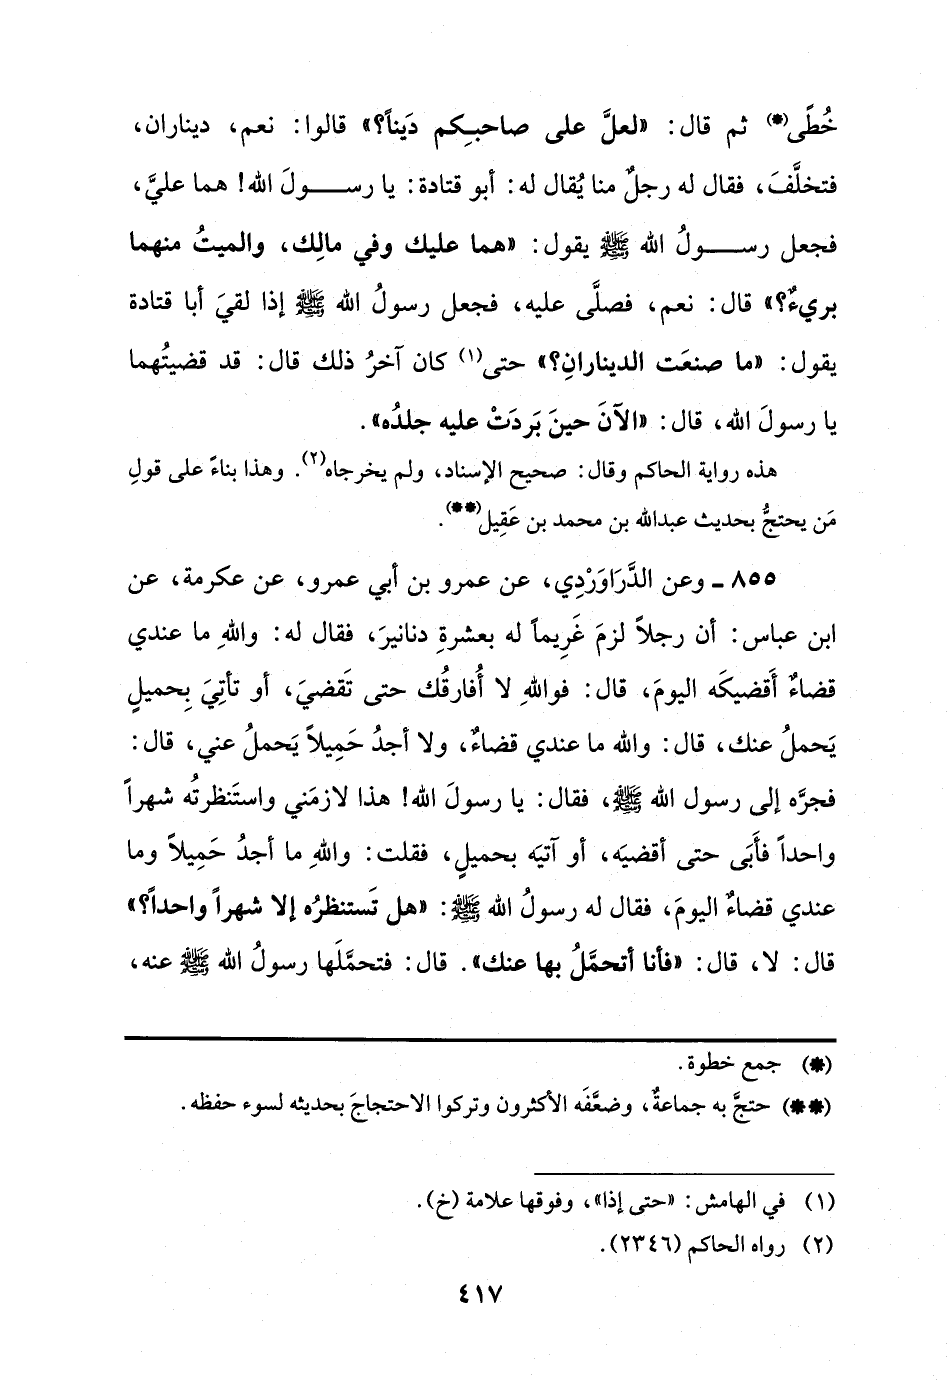 خُطًى(*) ثم قال: «لعلَّ على صاحبِكم دَيناً؟» قالوا: نعم، ديناران،
فتخلَّفَ، فقال له رجلٌ منا يُقال له: أبو قتادة: يا رسـولَ الله! هما عليَّ،
فجعل رسـولُ الله ﷺ يقول: «هما عليك وفي مالِك، والميتُ منهما
بريءٌ؟» قال: نعم، فصلَّى عليه، فجعل رسولُ الله ﷺ إذا لقيَ أبا قتادة
يقول: «ما صنعَت الديناران؟» حتى(١) كان آخرُ ذلك قال: قد قضيتُهما
يا رسولَ الله، قال: «الآنَ حينَ بَردَتْ عليه جلدُه».
هذه رواية الحاكم وقال: صحيح الإسناد، ولم يخرجاه(٢). وهذا بناءً على قولِ
مَن يحتجُّ بحديث عبدالله بن محمد بن عَقِيل(**).
٨٥٥ ـ وعن الدَّرَاوَرْدِي، عن عمرو بن أبي عمرو، عن عكرمة، عن
ابن عباس: أن رجلاً لزمَ غَرِيماً له بعشرةِ دنانيرَ، فقال له: واللهِ ما عندي
قضاءٌ أَقضيكَه اليومَ، قال: فواللهِ لا أُفارقُك حتى تَقضيَ، أو تأتيَ بِحميلٍ
يَحملُ عنك، قال: والله ما عندي قضاءٌ، ولا أجدُ حَمِيلاً يَحملُ عني، قال:
فجرَّه إلى رسول الله ﷺ، فقال: يا رسولَ الله! هذا لازمَني واستَنظرتُه شهراً
واحداً فأَبَى حتى أقضيَه، أو آتيَه بحميلٍ، فقلت: واللهِ ما أجدُ حَمِيلاً وما
عندي قضاءٌ اليومَ، فقال له رسولُ الله ﷺ: «هل تَستنظرُه إلا شهراً واحداً؟»
قال: لا، قال: «فأنا أتحمَّلُ بها عنك». قال: فتحمَّلَها رسولُ الله ﷺ عنه،
(*) جمع خطوة.
(**) حتجَّ به جماعةٌ، وضعَّفَه الأكثرون وتركوا الاحتجاجَ بحديثه لسوء حفظه.
(١) في الهامش: «حتى إذا»، وفوقها علامة (خ).
(٢) رواه الحاكم (٢٣٤٦).
٤١٧